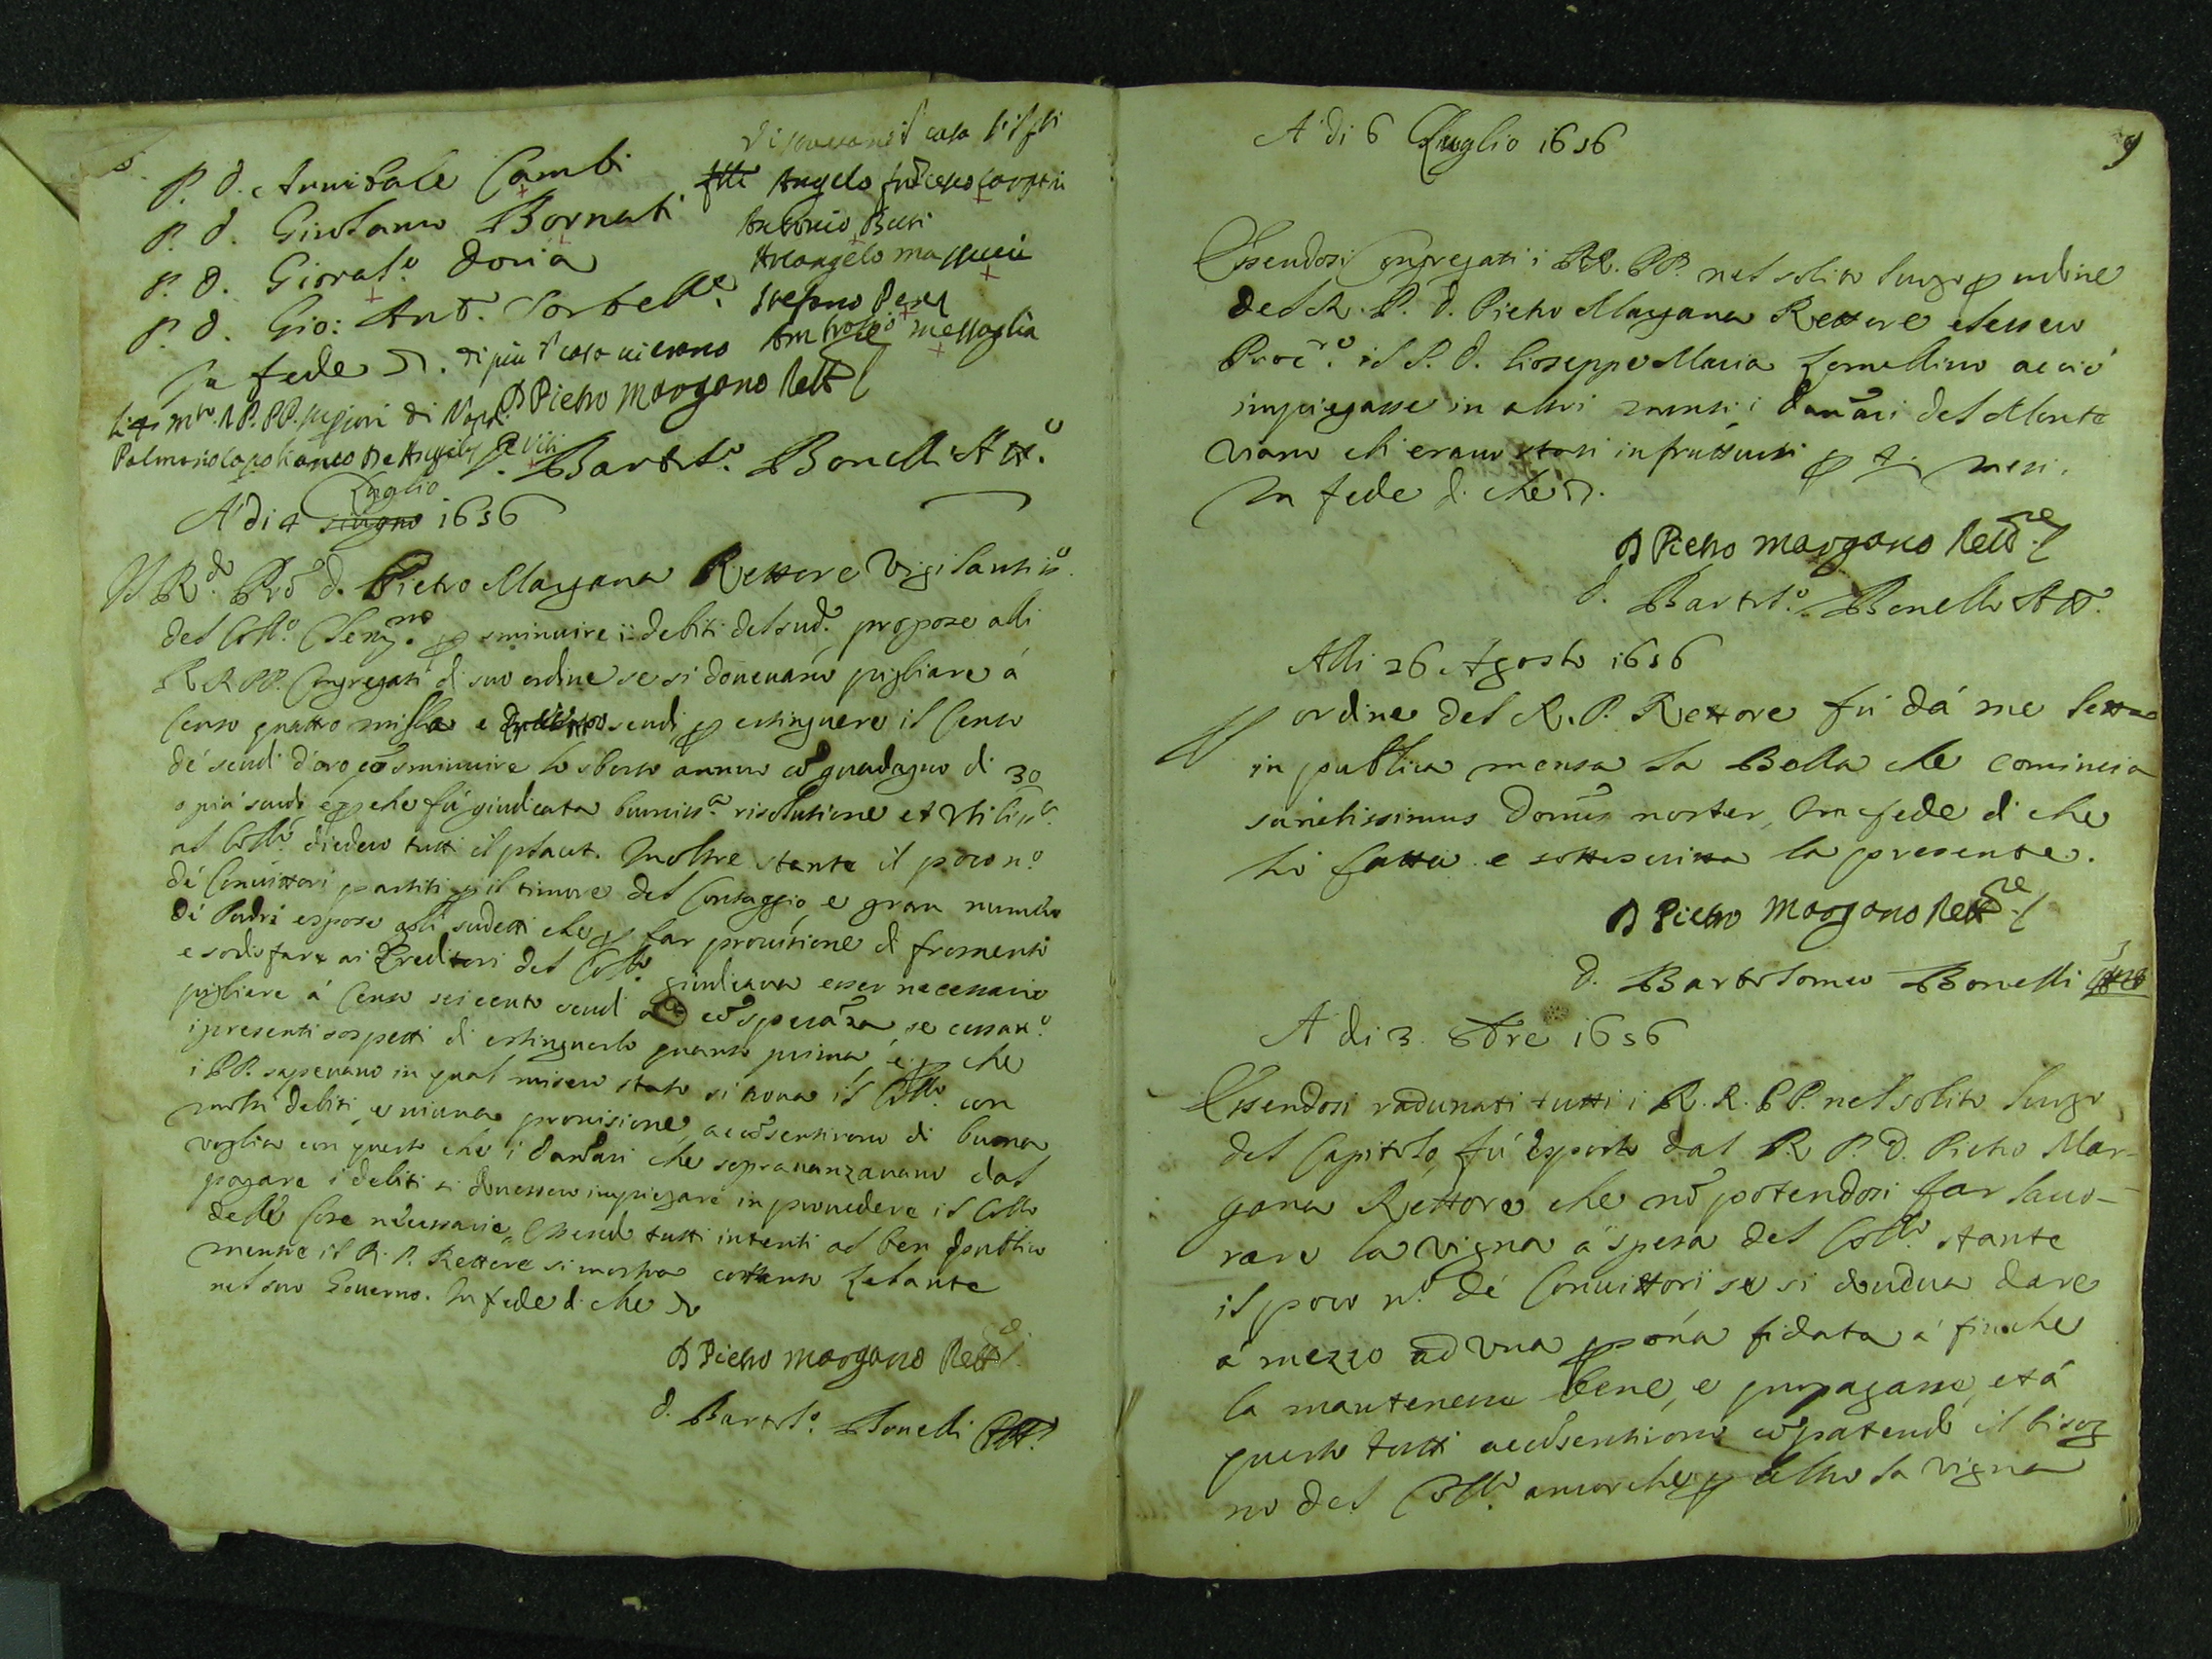 P. D. Annibale Cambi
P. D. Girolamo Bornati
P. D. Gioras.o Doria
P. D. Gio: Ant.o Sorbell.e
In fede di più d casa vi erano
D Pietro Margano Rett
di casa
Angelo
Antonio
Arcangelo
Stefano
Ambrosio Messaglia
P. Bartol.o Bonelli Att.o
A di 4 giugno Luglio 1656
Il R.do Prē d. Pietro Margana Rettore Vigilantiss.o
del Coll.o Clem.no p sminuire i debiti del sud.o propose alli
RR PP. Congregati di suo ordine se si doveuano pigliare á
Censo quattro milla e scudi p estinguere il Censo
dé scudi d'oro sminuire lo sborso annuo cō guadagno di 30
o piú scudi che fú giudicata buoniss.a risolutione et Utiliss.a
al Coll.o diedero tutti il placet. Inoltre stante il poco n.o
dé Conuittori partiti p il timore del Contaggio, e gran numero
dé Padri espose alli sudetti che p far prouisione di fromento
e sodisfare ai Creditori del Coll.o giudicaua esser necessario
pigliare á Censo seicento scudi cō speráza, se cessan.o
i presenti sospetti di estinguerlo quanto prima, e p che
i PP. sapeuano in qual misero stato si troua il Coll.o con
molti debiti, e niuna prouisione, accōsentirono di buona
voglia con questo che i danari che soprauanzauano dal
pagare i debiti si douessero impiegare in prouedere il Collo
delle Cose necessarie, Essendo tutti intenti al ben publico
mentre il R. P. Rettore si mostra cotanto Zelante
nel suo Gouerno. In fede di che
D Pietro Margano Rett
d. Bartol.o Bonelli Att.
9
A di 6 Luglio 1656
Essendosi Congregati i RR. PP. nel solito luogo p ordine
del R. P. D. Pietro Margana Rettore elessero
Proc.re il P. D. Gioseppe Maria Lomellino acció
impiegasse in altri monti i danari del Monte
che erano stati infruttuosi p 4 mesi.
In fede di che
D Pietro Margano Rett.re
d. Bartol.o Bonelli Att.
Alli 26 Agosto 1656
D ordine del R. P. Rettore fú dá me letta
in publica mensa la Bolla che comincia
sanctissimus Domús noster, In fede di che
hó fatta e sottoscritta la presente.
D Pietro Margano Rett.re
d. Bartolomeo Bonelli
A di 3. 8bre 1656
Essendosi radunati tutti i R. R. PP. nel solito luogo
del Capitolo, fú esposto dal R P. D. Pietro Mar-
gana Rettore che nō potendosi far lauo-
rare la vigna á spesa del Coll.o stante
il poco n.o dé Conuittori se si doueua dare
á mezzo ad una psona fidata á finche
la mantenesse bene, e propagasse, et á
questo tutti accōsentirono cōpatendo il bisog
no del Coll.o ancorche p altro la vigna